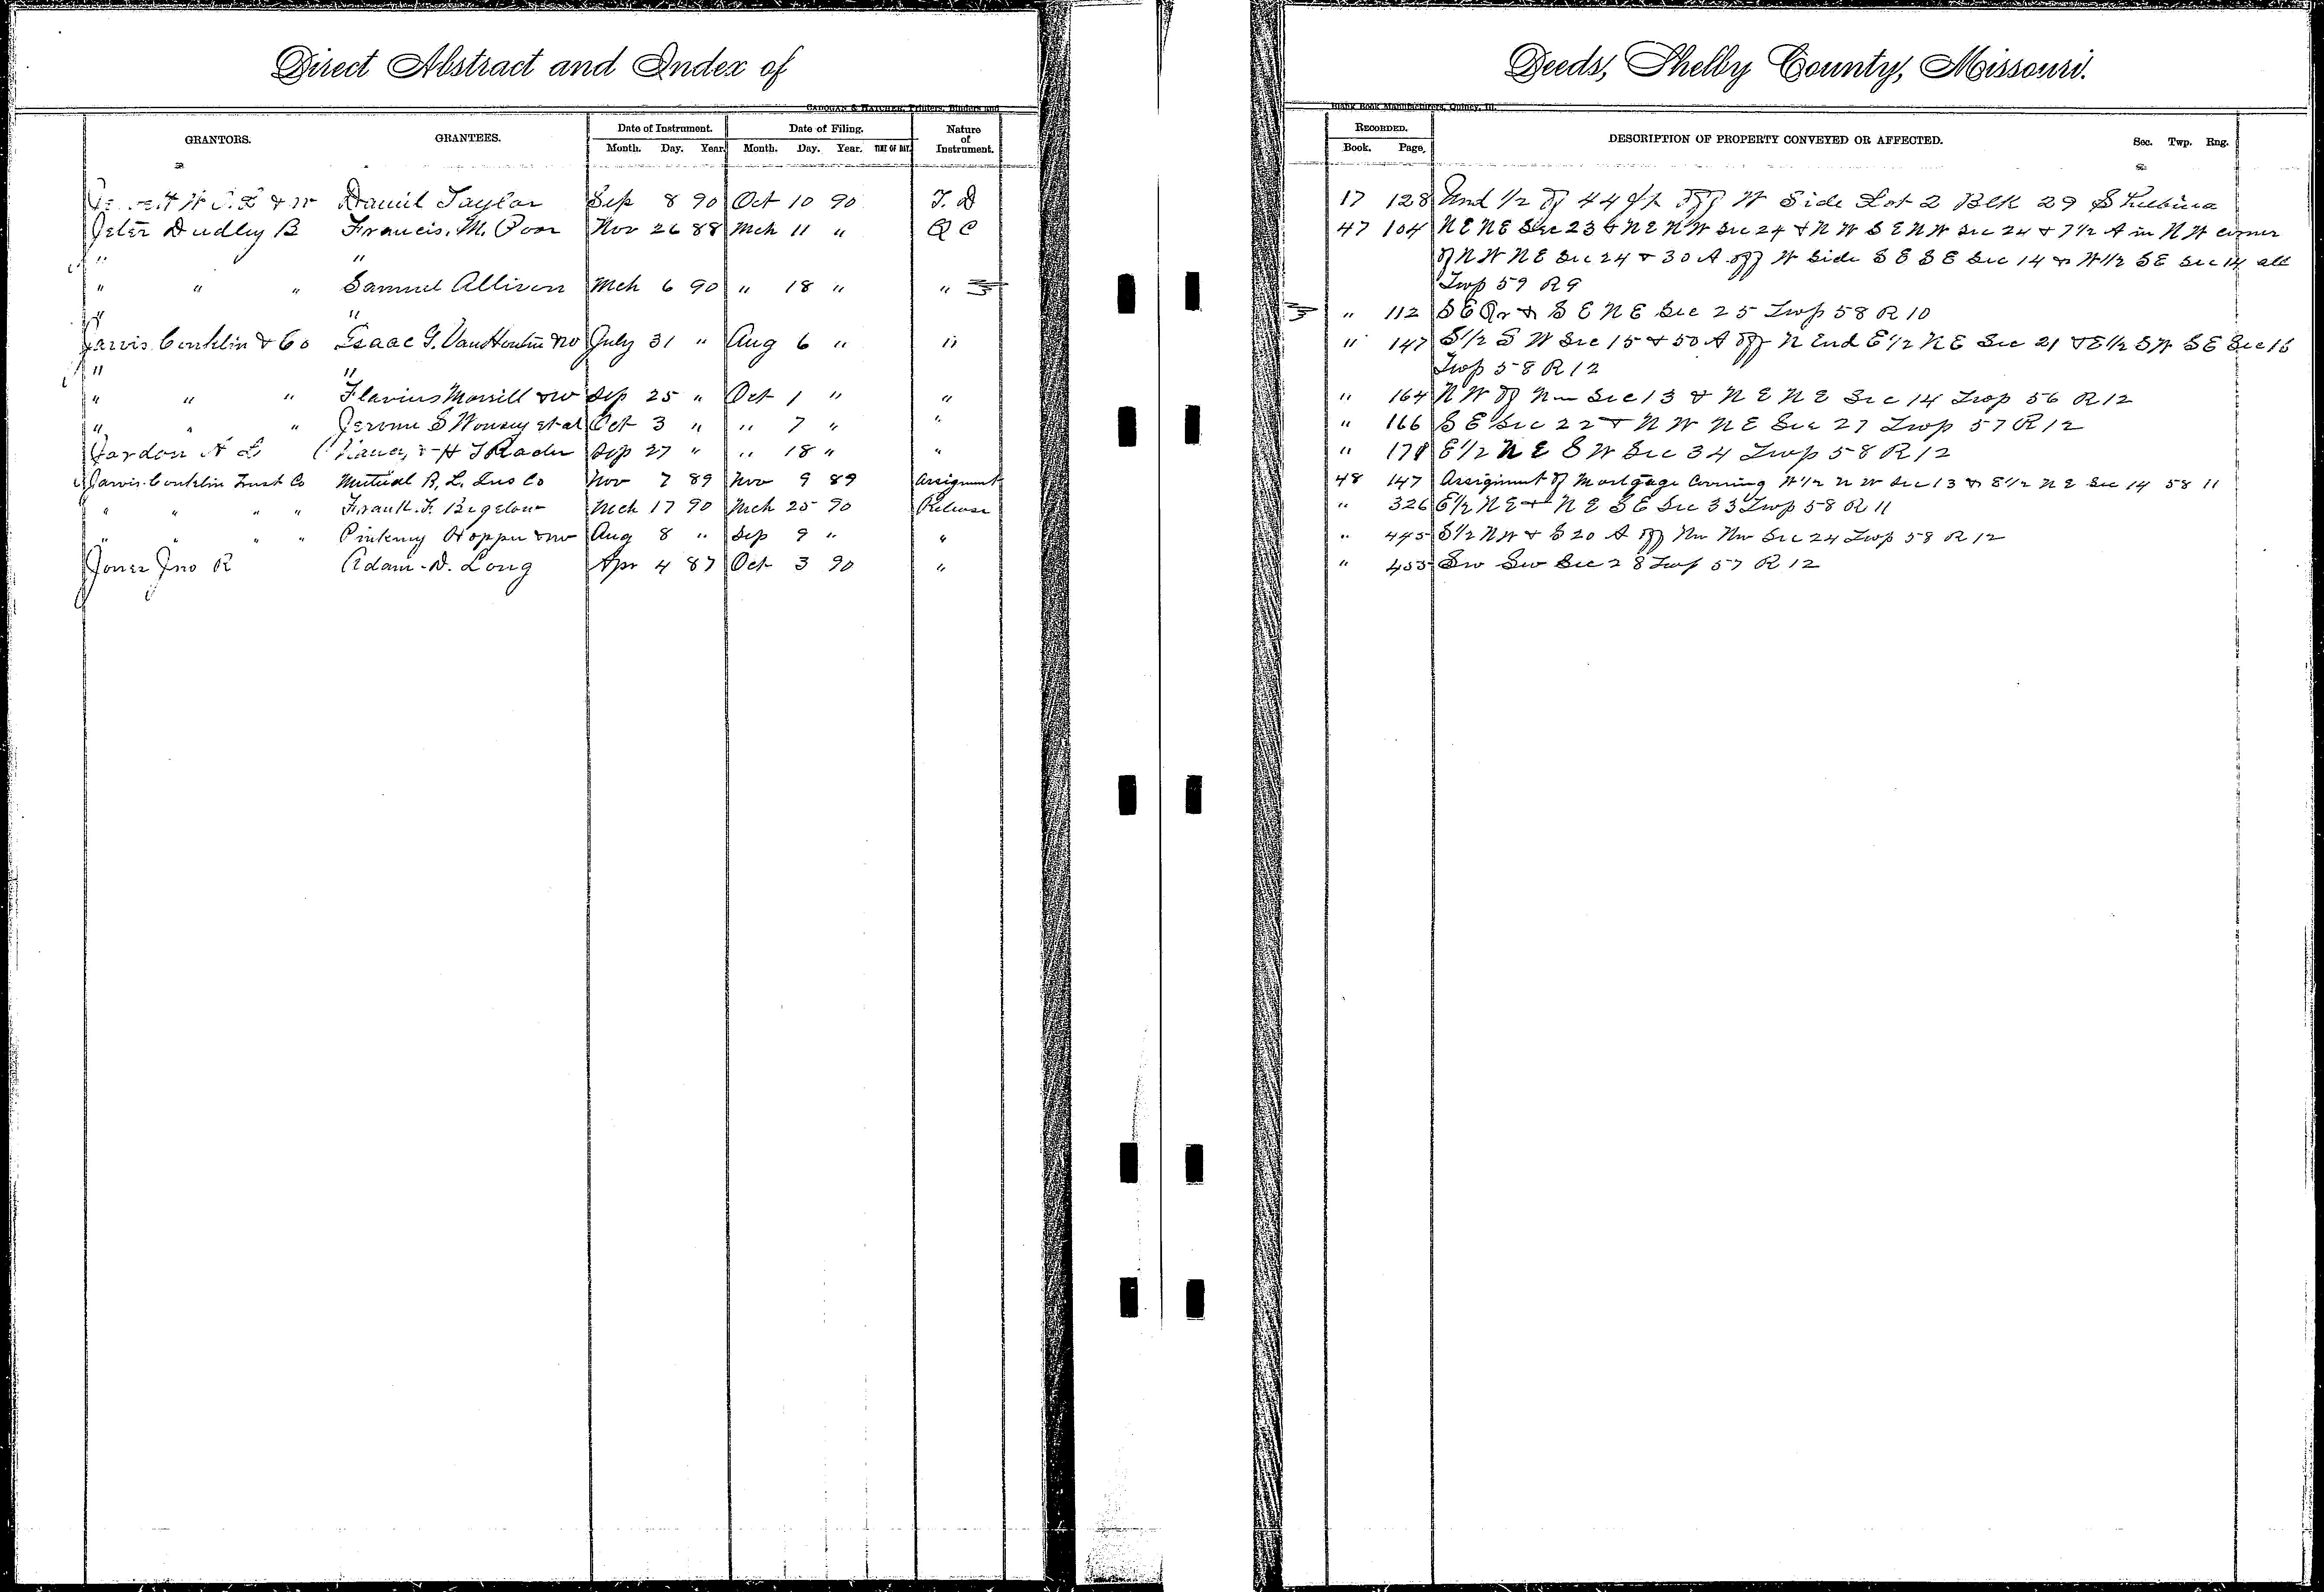 Direct Abstract and Index of
Deeds, Shelby County, Missouri.
CADOGAN & HATCHER, Printers, Binders and
Blank Book Manufacturers, Quincy, Ill.
GRANTORS. GRANTEES. Date of Instrument. Date of Filing. Nature of Instrument.
Month. Day. Year. Month. Day. Year. TIME OF DAY.
RECORDED. DESCRIPTION OF PROPERTY CONVEYED OR AFFECTED. Sec. Twp. Rng.
Book. Page.
Daniel Taylor Sep 8 90 Oct 10 90 T. D 17 128 Und 1/2 of 44 ft off W Side Lot 2 Blk 29 Shelbina
Jeter Dudley B Francis. M. Poor Nov 26 88 Mch 11 " Q C 47 104 N E N E Sec 23 & N E N W Sec 24 & N W S E N W Sec 24 & 7 1/2 A in N W corner
" " of N W N E Sec 24 & 30 A off W Side S E S E Sec 14 & W 1/2 S E Sec 14 all
" " " Samuel Allison Mch 6 90 " 18 " " Twp 59 R 9
" " " 112 S E Qr & S E N E Sec 25 Twp 58 R 10
Jarvis Conklin & Co Isaac G. VanHouten & w July 31 " Aug 6 " " " 147 S 1/2 S W Sec 15 & 50 A off N End E 1/2 N E Sec 21 & E 1/2 S W S E Sec 16
" " Twp 58 R 12
" " " Flavius Morrill & w Sep 25 " Oct 1 " " " 164 N W of Nw Sec 13 & N E N E Sec 14 Twp 56 R 12
" " " Jerome S Wonsey et al Oct 3 " " 7 " " " 166 S E Sec 22 & N W N E Sec 27 Twp 57 R 12
& H T Rader Sep 27 " " 18 " " " E 1/2 N E S W Sec 34 Twp 58 R 12
Jarvis-Conklin Trust Co Mutual B. L. Ins Co Nov 7 89 Nov 9 89 Assignment 48 147 Assignment of Mortgage Covering W 1/2 N W Sec 13 & E 1/2 N E Sec 14 58 11
" " " " Frank. F. Bigelow Mch 17 90 Mch 25 90 Release " 326 E 1/2 N E & N E S E Sec 33 Twp 58 R 11
" " " " Pinkney Hopper & w Aug 8 " Sep 9 " " " 445 S 1/2 N W & S 20 A off Nw Nw Sec 24 Twp 58 R 12
Jones Jno R Adam. D. Long Apr 4 87 Oct 3 90 " " 455 Sw Sw Sec 28 Twp 57 R 12